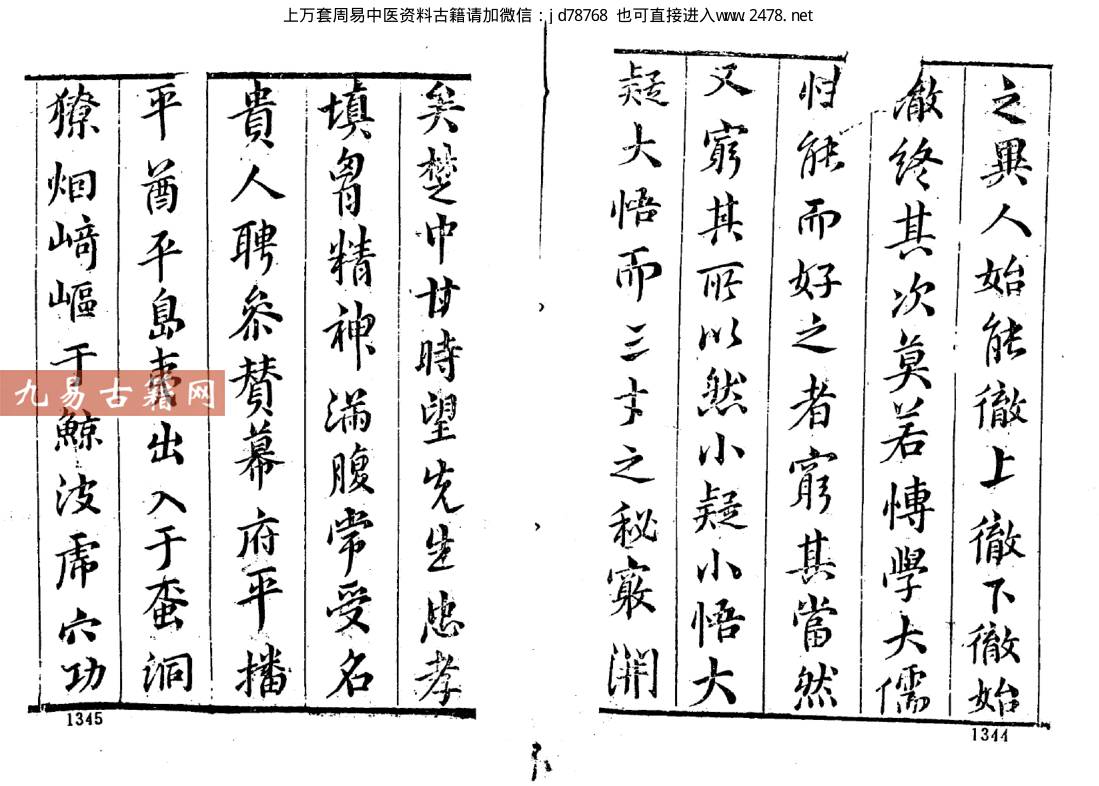 上万套周易中医资料古籍请加微信：jd78768 也可直接进入www.2478.net
之異人始能徹上徹下徹始
徹終其次莫若博學大儒
归能而好之者窮其當然
又窮其所以然小疑小悟大
疑大悟而三才之秘竅開
1344
矣楚中甘時望先生忠孝
填胷精神滿腹常受名
貴人聘參贊幕府平播
平酋平島夷出入于蛮洞
獠烟﨑嶇于鯨波虎穴功
1345
九易古籍网